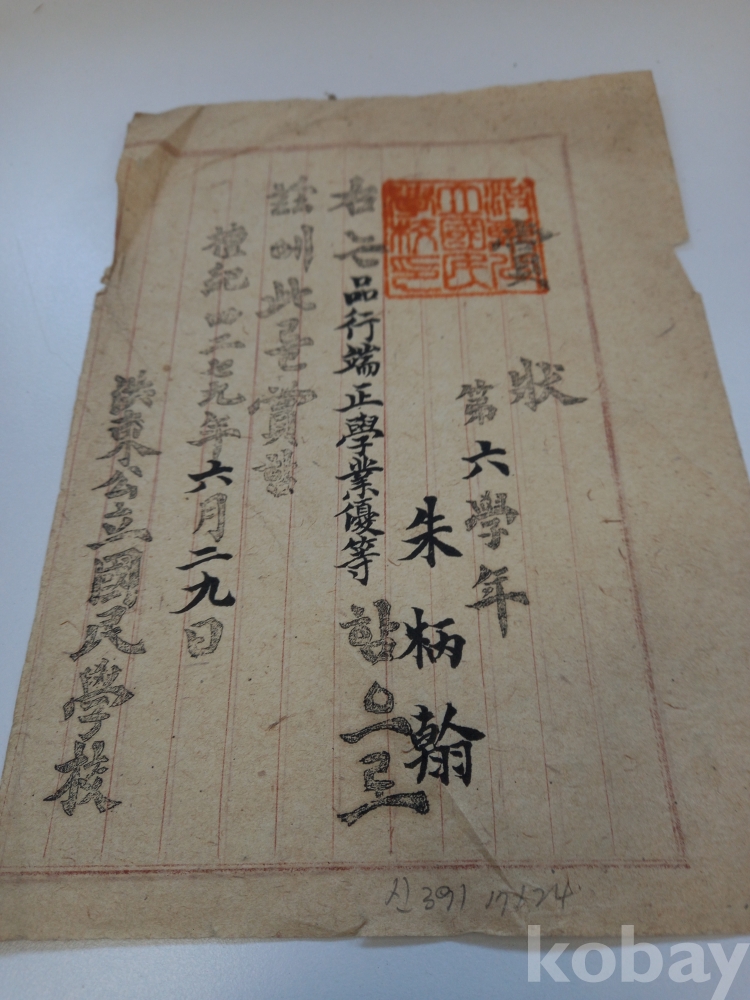 賞狀
第六學年
朱柄翰
右는品行端正學業優等함으로
玆에此를賞함
檀紀四二七九年六月二九日
洪東公立國民學校
신391 17×24
kobay